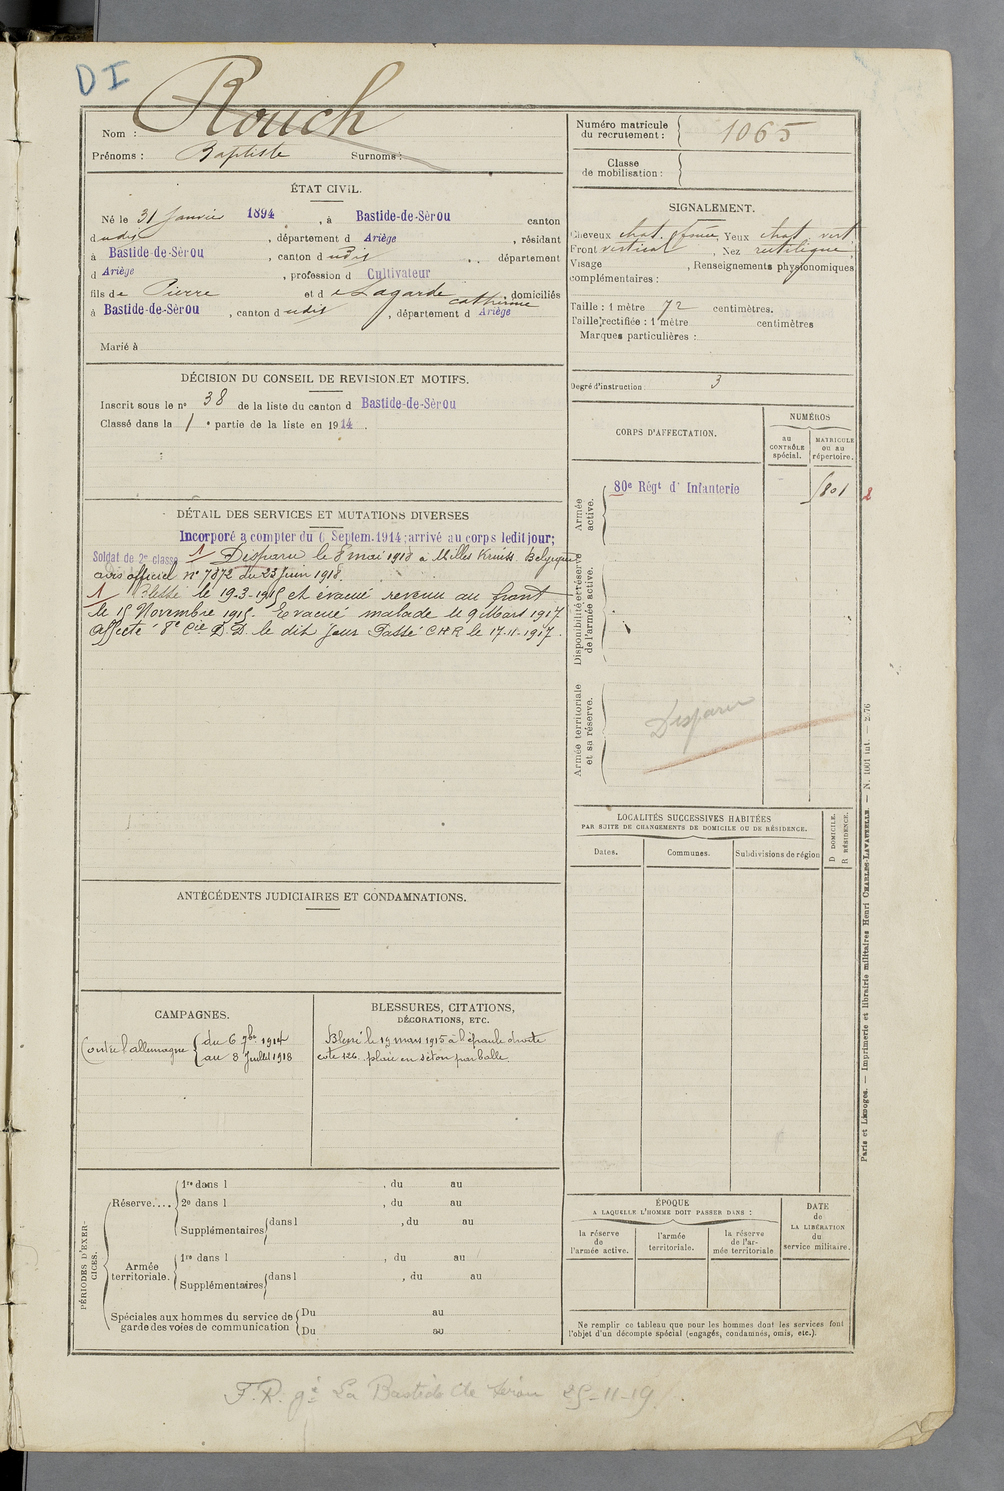 DI
Nom : Rouch
Prénoms : Baptiste Surnoms :
Numéro matricule du recrutement : 1065
Classe de mobilisation :
ÉTAT CIVIL.
Né le 31 Janvier 1894, à Bastide-de-Sérou canton
dudit, département d Ariège, résidant
à Bastide-de-Sérou, canton dudit, département
d Ariège, profession d Cultivateur
fils de Pierre et de Lagarde Catherine, domiciliés
à Bastide-de-Sérou, canton dudit, département d Ariège
Marié à
SIGNALEMENT.
Cheveux chat. foncé, Yeux chat vert
Front vertical, Nez rectiligne,
Visage , Renseignements physionomiques
complémentaires :
Taille : 1 mètre 72 centimètres.
Taille rectifiée : 1 mètre centimètres
Marques particulières :
Degré d'instruction : 3
DÉCISION DU CONSEIL DE REVISION ET MOTIFS.
Inscrit sous le n° 38 de la liste du canton d Bastide-de-Sérou
Classé dans la 1e partie de la liste en 1914.
CORPS D'AFFECTATION.
NUMÉROS
au CONTRÔLE spécial.
MATRICULE ou au répertoire.
Armée active.
80e Régt d' Infanterie
801
2
Disponibilité et réserve de l'armée active.
Armée territoriale et sa réserve.
Disparu
DÉTAIL DES SERVICES ET MUTATIONS DIVERSES
Incorporé à compter du 6 Septem. 1914; arrivé au corps ledit jour;
Soldat de 2e classe 1 Disparu le 8 mai 1918 à Milles Kruiss Belgique
avis officiel n° 7372 du 23 juin 1918.
1 Blessé le 19-3-1915 et évacué revenu au front
le 15 Novembre 1915. Evacué malade le 9 Mars 1917
Affecté 8e Cie D.D. le dit jour Passé CHR le 17-11-1917.
LOCALITÉS SUCCESSIVES HABITÉES
PAR SUITE DE CHANGEMENTS DE DOMICILE OU DE RÉSIDENCE.
Dates.
Communes.
Subdivisions de région
D DOMICILE.
R RÉSIDENCE.
ANTÉCÉDENTS JUDICIAIRES ET CONDAMNATIONS.
CAMPAGNES.
Contre l'allemagne du 6 7bre 1914
au 8 Juillet 1918
BLESSURES, CITATIONS,
DÉCORATIONS, ETC.
Blessé le 19 mars 1915 à l'épaule droite
cote 126. plaie en séton par balle.
PÉRIODES D'EXERCICES.
Réserve.... 1re dans l , du au
2e dans l , du au
Supplémentaires dans l , du au
Armée territoriale. 1re dans l , du au
Supplémentaires dans l , du au
Spéciales aux hommes du service de garde des voies de communication
Du au
Du au
ÉPOQUE
A LAQUELLE L'HOMME DOIT PASSER DANS :
la réserve de l'armée active.
l'armée territoriale.
la réserve de l'armée territoriale
DATE de LA LIBÉRATION du service militaire.
Ne remplir ce tableau que pour les hommes dont les services font
l'objet d'un décompte spécial (engagés, condamnés, omis, etc.).
Paris et Limoges. — Imprimerie et librairie militaires Henri CHARLES-LAVAUZELLE. — N. 1001 int. — 2.76
F.R. gé La Bastide de Sérou 25-11-19.